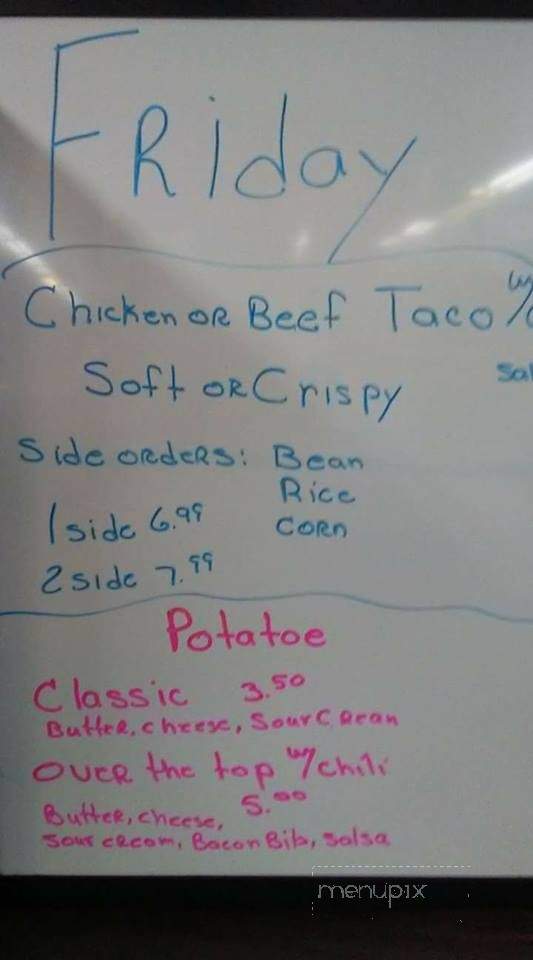 Friday
Chicken or Beef Taco w/
Soft or Crispy
Side orders: Bean
Rice
1 side 6.99 Corn
2 side 7.99
Potatoe
Classic 3.50
Butter, cheese, Sour Crean
Over the top w/chili
5.00
Butter, cheese,
Sour cream, Bacon Bib, Salsa
menupix